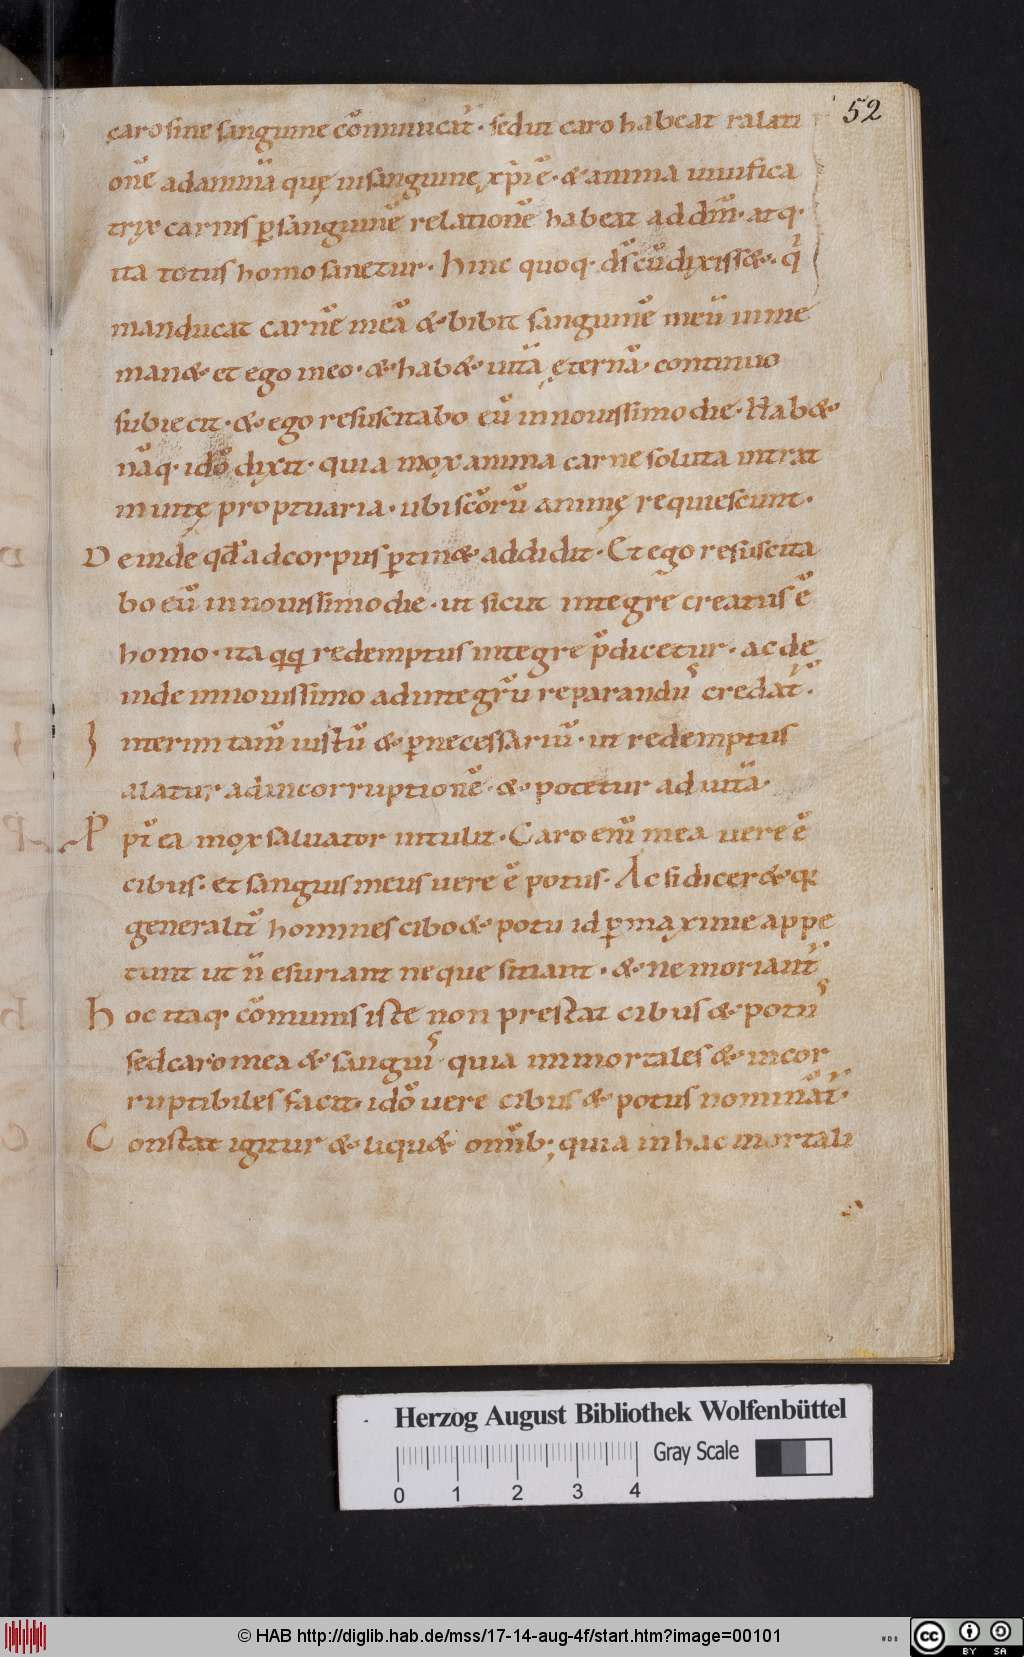 52
caro sine sanguine cōmunicat̄· sed ut caro habeat ralati
onē ad animā quę in sanguine xp̄i ē· & anima uiuifica
tryx carnis p̱ sanguinē relationē habeat ad dm̄· atq·
ita totus homo sanetur· Hinc quoq· dn̄s cū dixiss&· q̄
manducat carnē meā & bibit sanguinē meū in me
man& et ego in eo· & hab& uitā ęternā· continuo
subiecit· & ego resuscitabo eū in nouissimo die· Hab&
nāq· idō dixit· quia mox anima carne soluta intrat
in uitę proptuaria· ubi scōrū animę requiescunt·
Deinde qđ ad corpus p̱tin& addidit· Et ego resuscita
bo eū in nouissimo die· ut sicut integer creatus ē
homo· ita qq̱ redemptus integre p̄dicetur· ac de
inde in nouissimo ad integrū reparandus credat̄·
Interim tam̄ iustū & p̱necessariū· ut redemptus
alatur ad incorruptionē· & potetur ad uitā·
Ppt̄ ea mox saluator intulit· Caro enī mea uere ē
cibus· et sanguis meus uere ē potus· Ac si dicer& qꝛ
generalit̄ homines cibo & potu id p̱maxime appe
tunt ut n̄ esuriant neque sitiant· & ne moriant̄
Hoc itaqꝛ cōmunis iste non prestat cibus & potus
sed caro mea & sanguis quia immortales & incor
ruptibiles facit· idō uere cibus & potus nominat̄·
Constat igitur & liqu& omīb; quia in hac mortali
Herzog August Bibliothek Wolfenbüttel
Gray Scale
0 1 2 3 4
© HAB http://diglib.hab.de/mss/17-14-aug-4f/start.htm?image=00101
WDB
cc BY SA